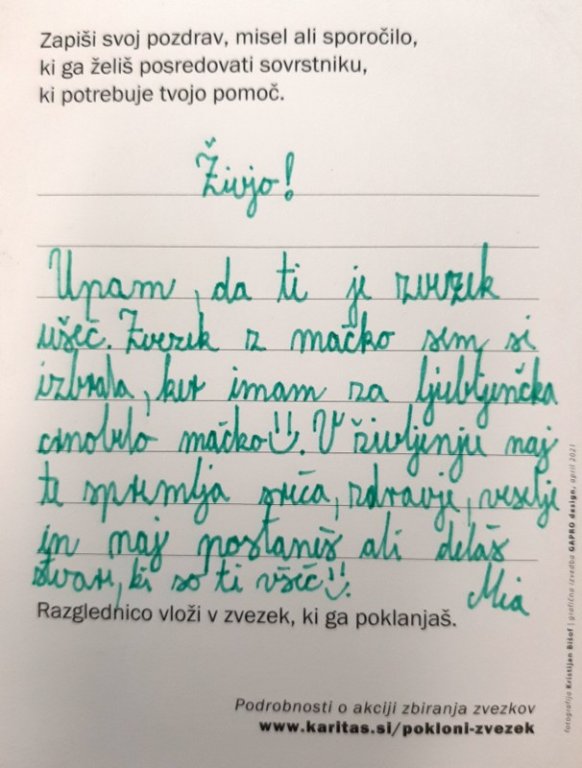 Zapiši svoj pozdrav, misel ali sporočilo,
ki ga želiš posredovati sovrstniku,
ki potrebuje tvojo pomoč.
Živjo!
Upam, da ti je zvezek
ušeč. Zvezek z mačko sem si
izbrala, ker imam za ljubljenčka
črnobelo mačko. V življenju naj
te spremlja sreča, zdravje, veselje
in naj postaniš ali delaš
stvari, ki so ti všeč!
Mia
Razglednico vloži v zvezek, ki ga poklanjaš.
Podrobnosti o akciji zbiranja zvezkov
www.karitas.si/pokloni-zvezek
fotografija Kristijan Bišof | grafična izvedba GAPRO design, april 2021